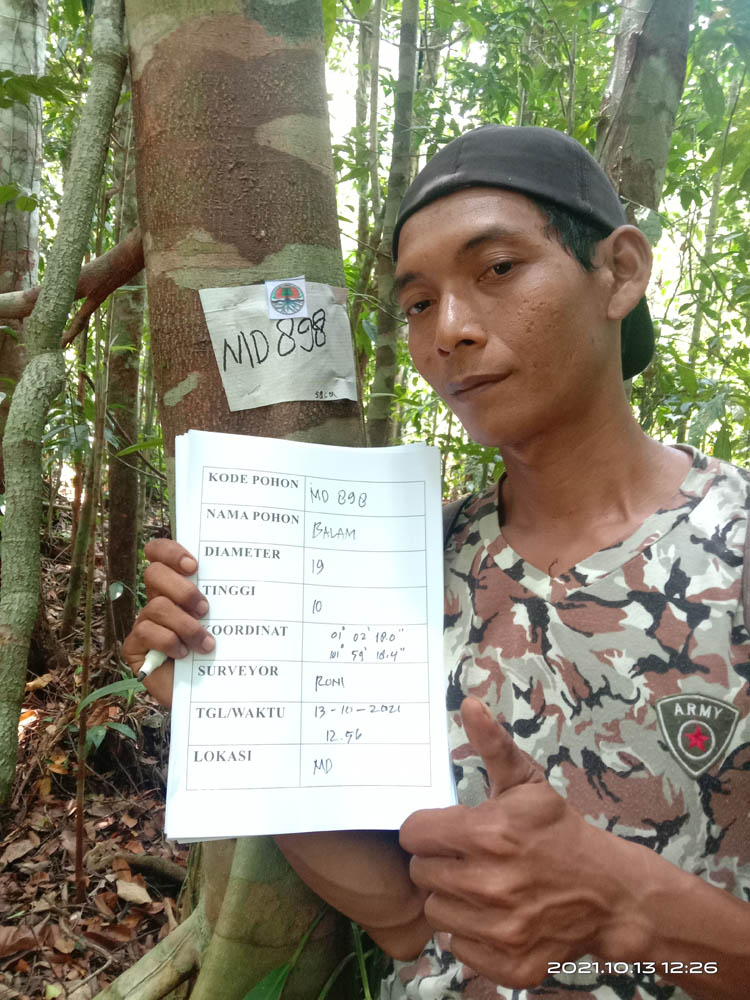 MD 898
KODE POHON MD 898
NAMA POHON BALAM
DIAMETER 19
TINGGI 10
KOORDINAT 01° 02' 18.0"
101° 59' 18.4"
SURVEYOR RONI
TGL/WAKTU 13-10-2021
12.56
LOKASI MD
ARMY
2021.10.13 12:26